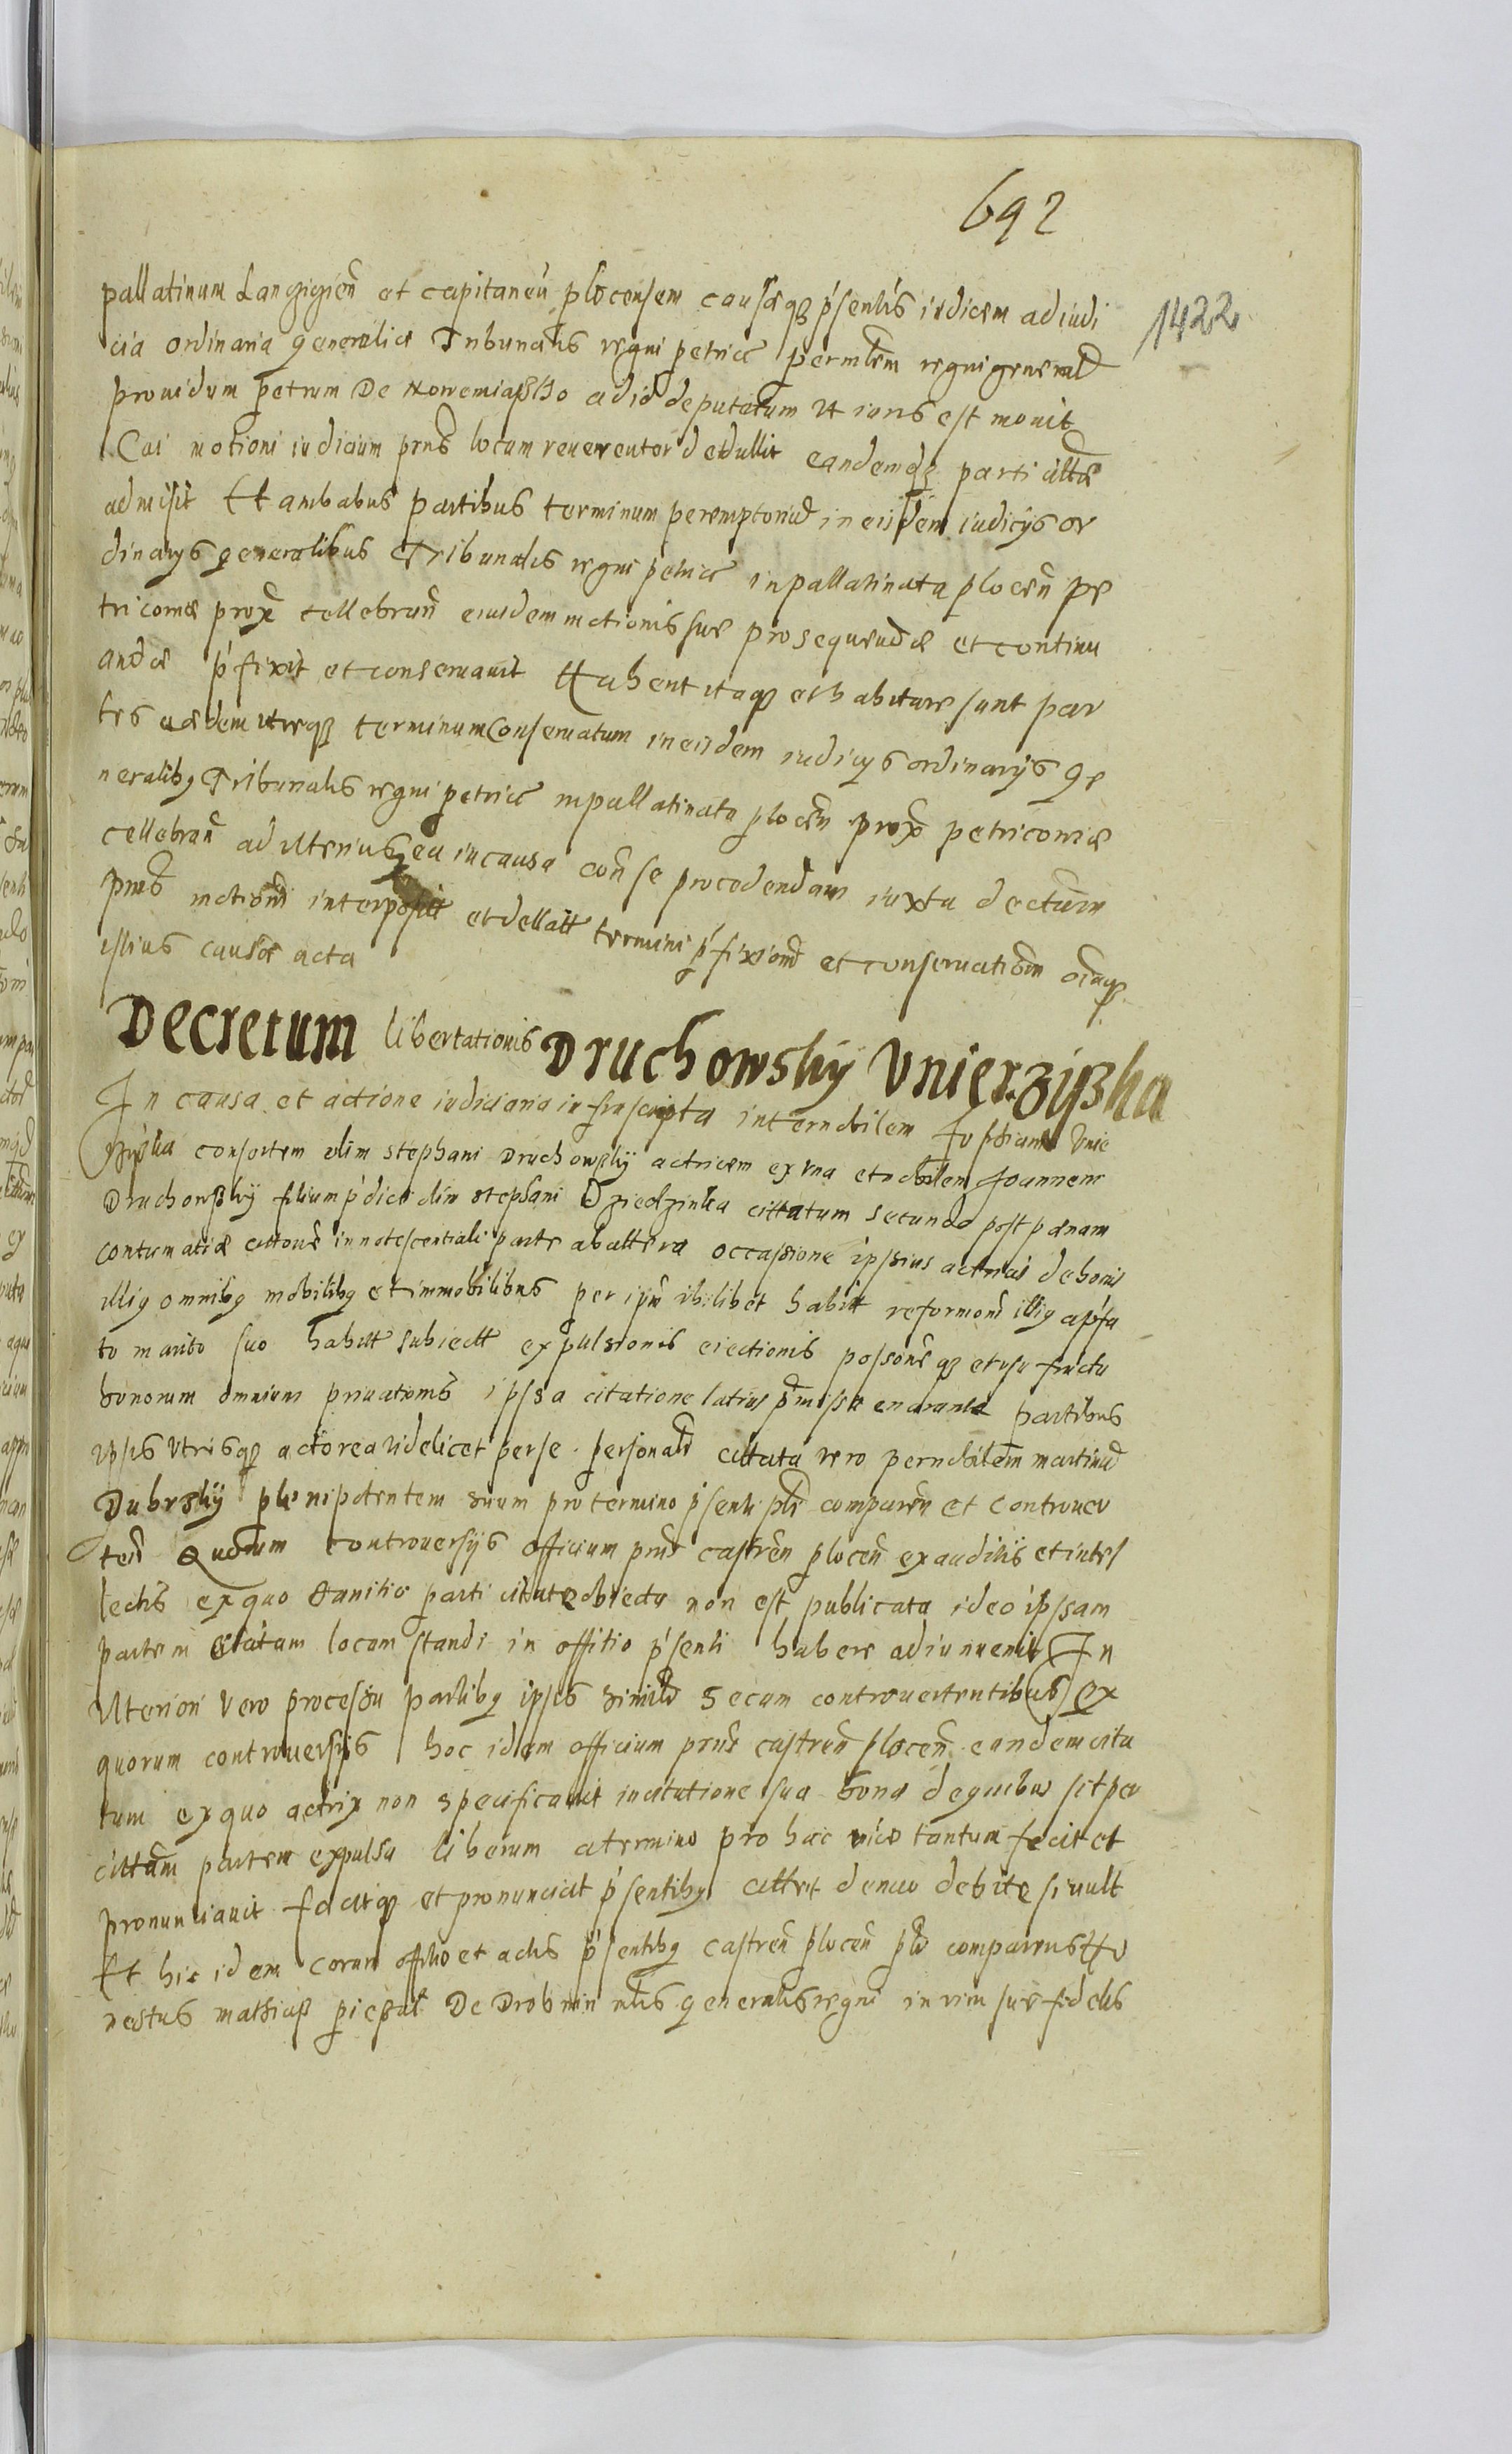 692
1422
pallatinum Lanczicien et capitaneu plocensem causæq3 p'sentis iudicem ad iudi
cia ordinaria generalia Tribunalis regni petric per mlem regni general
prouidum petrum De Nowemiasto ad id deputatum ut iuris est mouit
Cui motioni iudicium pns locum reuerenter detullit eandemq3 parti
admisit Et ambabus partibus terminum peremptoriu in eisdem iudicijs or
dinarys generalibus Tribunalis regni petric in pallatinatu plocen pe
tricouiæ prox cellebran eiusdem motionis sue prosequendæ et continu
andæ p'fixit et conseruauit Habent itaq3 et habiture sunt par
tes eædem utreq3 terminum Conseruatum in eisdem iudicys ordinarijs ge
neralib9 Tribunalis regni petric in pallatinatu plocen prox petricouiæ
cellebran ad ulterius ea in causa con se procedendum iuxta decretum
pns motioni interposit et dellatt termini p'fixiom et conseruationem
istius causæ acta
Decretum libertationis Druchowsky Vnierziska
In causa et actione iudiciaria infrascripta inter nobilem Vnie
rziska consortem olim Stephani Druchowsky actricem ex vna et nobilem Joannem
Druchowsky filium p'dicti olim Stephani Dziedzinka cittatum secundo post pænam
contumatiæ cittone innotescentiali parte ab altera occassione ipsius actricis de bonis
illi9 omnib9 mobilib9 et immobilibus per ipm ibilibet habit reformom illi9 a p'fa
to marito suo habitt subiectt expulsionis eiectionis possone q3 et usu fructu
bonorum omnium priuationis ipsa citatione latius pmissa enarante partibus
ipsis utrisq3 actorea videlicet per se personalr cittata vero per nobilem martinu
Dubrsky plenipotentem suum pro termino p'senti plr comparen et controuer
ten Quorum controuersijs officium pns castren plocen exauditis et intel
lectis ex quo banitio parti citate obiecta non est publicata ideo ipsam
partem citatam locum standi in offitio p'senti habere adinuenit In
Ulteriori vero processu partib9 ipsis similr secum controuertentibus ex
quorum controuersijs hoc idem officium pns castren plocen eundem cita
tum ex quo actrix non specificauit in citatione sua bona de quibus sit per
cittam partem expulsa liberum a termino pro hac vice tantum fecit et
pronunciauit facitq3 et pronunciat p'sentib9 cittet denuo debite si uult
Et hic idem coram offitio et actis p'sentib9 castren plocen plr comparens Ho
nestus mathias De Drobnin mlis generalis regni in vim sue fidelis